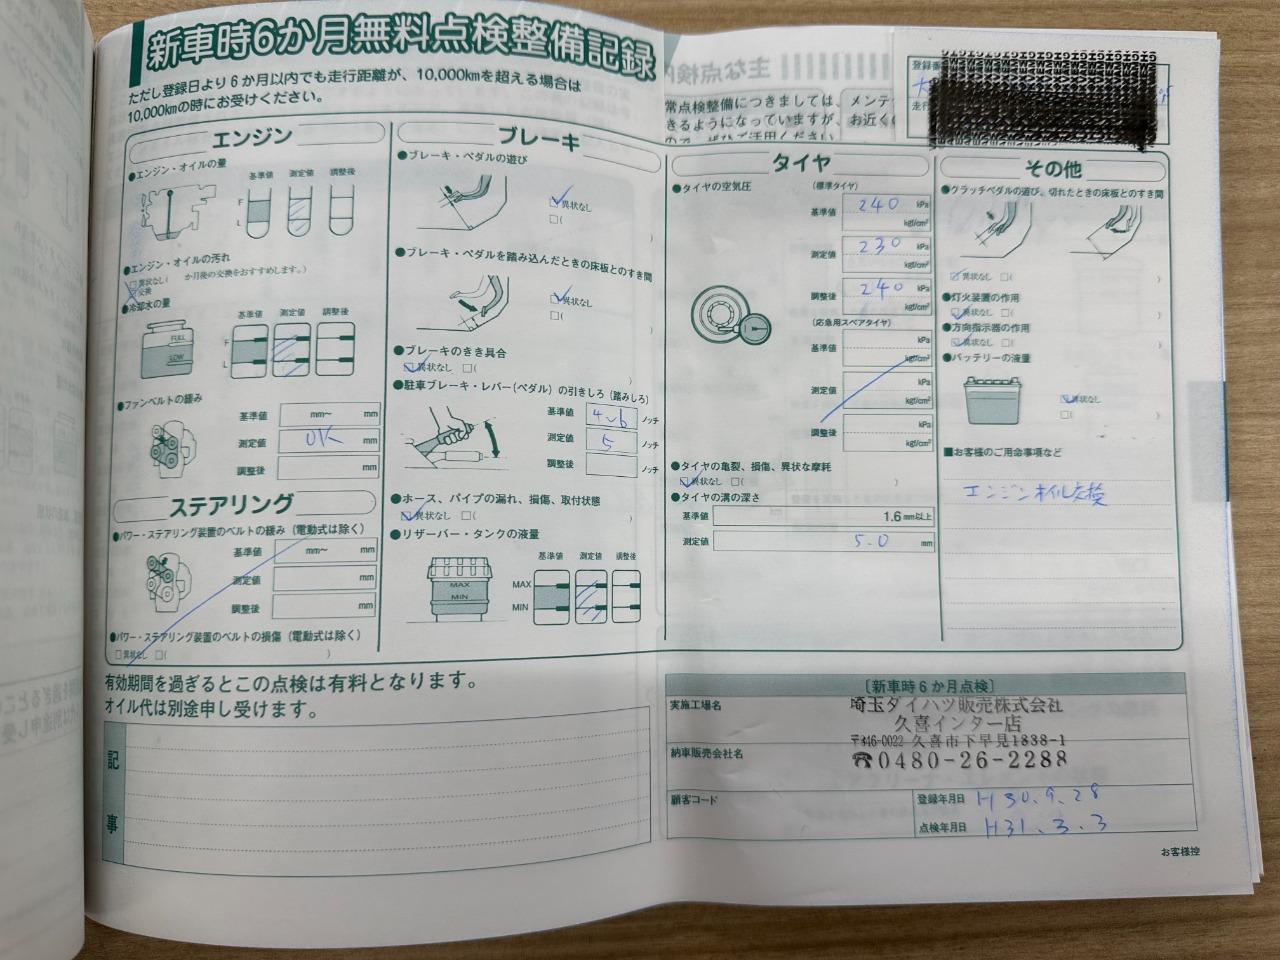 新車時6か月無料点検整備記録
ただし登録日より6か月以内でも走行距離が、10,000kmを超える場合は
10,000kmの時にお受けください。
エンジン
●エンジン・オイルの量
基準値 測定値 調整後
F
L
●エンジン・オイルの汚れ
□異状なし( か月後の交換をおすすめします。)
□交換
●冷却水の量
FULL
LOW
基準値 測定値 調整後
F
L
●ファンベルトの緩み
基準値 mm~ mm
測定値 OK mm
調整後 mm
ステアリング
●パワー・ステアリング装置のベルトの緩み(電動式は除く)
基準値 mm~ mm
測定値 mm
調整後 mm
●パワー・ステアリング装置のベルトの損傷(電動式は除く)
□異状なし □( )
ブレーキ
●ブレーキ・ペダルの遊び
□異状なし
□( )
●ブレーキ・ペダルを踏み込んだときの床板とのすき間
□異状なし
□( )
●ブレーキのきき具合
□異状なし □( )
●駐車ブレーキ・レバー(ペダル)の引きしろ(踏みしろ)
基準値 4~6 ノッチ
測定値 5 ノッチ
調整後 ノッチ
●ホース、パイプの漏れ、損傷、取付状態
□異状なし □( )
●リザーバー・タンクの液量
MAX
MIN
基準値 測定値 調整後
MAX
MIN
主な点検内
常点検整備につきましては、
きるようになっていますが、
メンテ
お近くの
登録番
タイヤ
●タイヤの空気圧
(標準タイヤ)
基準値 240 kPa
kgf/cm²
測定値 230 kPa
kgf/cm²
調整後 240 kPa
kgf/cm²
(応急用スペアタイヤ)
基準値 kPa
kgf/cm²
測定値 kPa
kgf/cm²
調整後 kPa
kgf/cm²
●タイヤの亀裂、損傷、異状な摩耗
□異状なし □( )
●タイヤの溝の深さ
基準値 1.6mm以上
測定値 5.0 mm
その他
●クラッチペダルの遊び、切れたときの床板とのすき間
□異状なし □( )
●灯火装置の作用
□異状なし □( )
●方向指示器の作用
□異状なし □( )
●バッテリーの液量
□異状なし
□( )
■お客様のご用命事項など
エンジンオイル交換
有効期間を過ぎるとこの点検は有料となります。
オイル代は別途申し受けます。
記事
〔新車時6か月点検〕
実施工場名
埼玉ダイハツ販売株式会社
久喜インター店
〒346-0022 久喜市下早見1838-1
納車販売会社名
☎0480-26-2288
顧客コード
登録年月日 H30.9.28
点検年月日 H31.3.3
お客様控